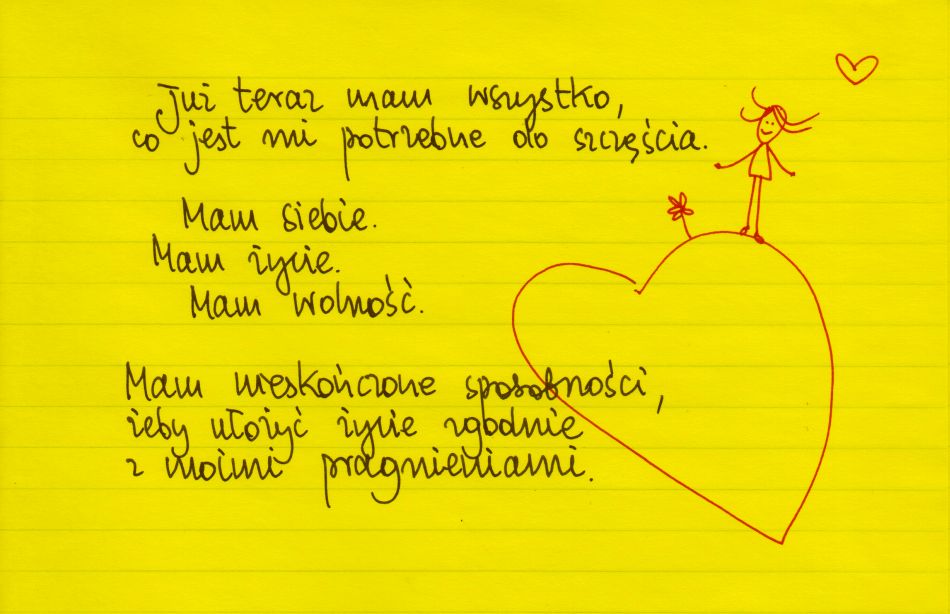 Już teraz mam wszystko,
co jest mi potrzebne do szczęścia.
Mam siebie.
Mam życie.
Mam wolność.
Mam nieskończone sposobności,
żeby ułożyć życie zgodnie
z moimi pragnieniami.